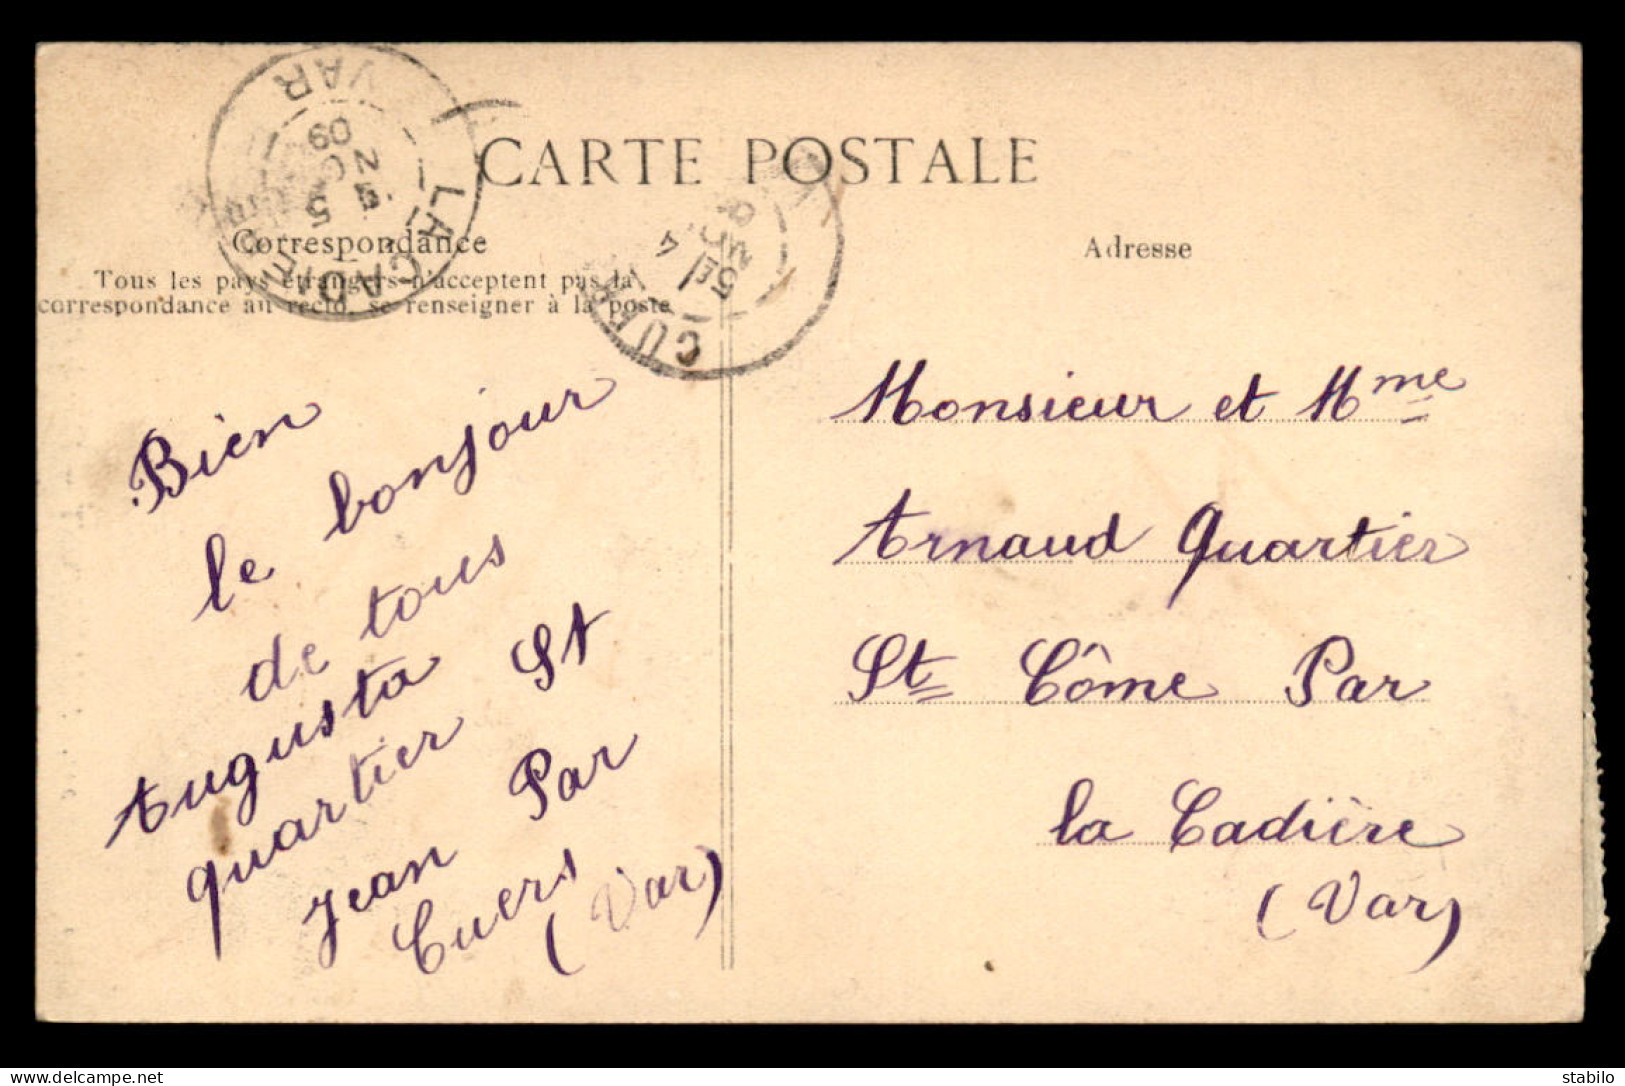 CARTE POSTALE
Correspondance
Tous les pays étrangers n'acceptent pas la
correspondance au recto, se renseigner à la poste
Adresse
LA CADIÈRE
VAR
5
09
CUERS
4
Bien
le bonjour
de tous
Augusta
quartier St
Jean Par
Cuers
(Var)
Monsieur et Mme
Arnaud Quartier
St Côme Par
la Cadière
(Var)
www.delcampe.net
stabilo